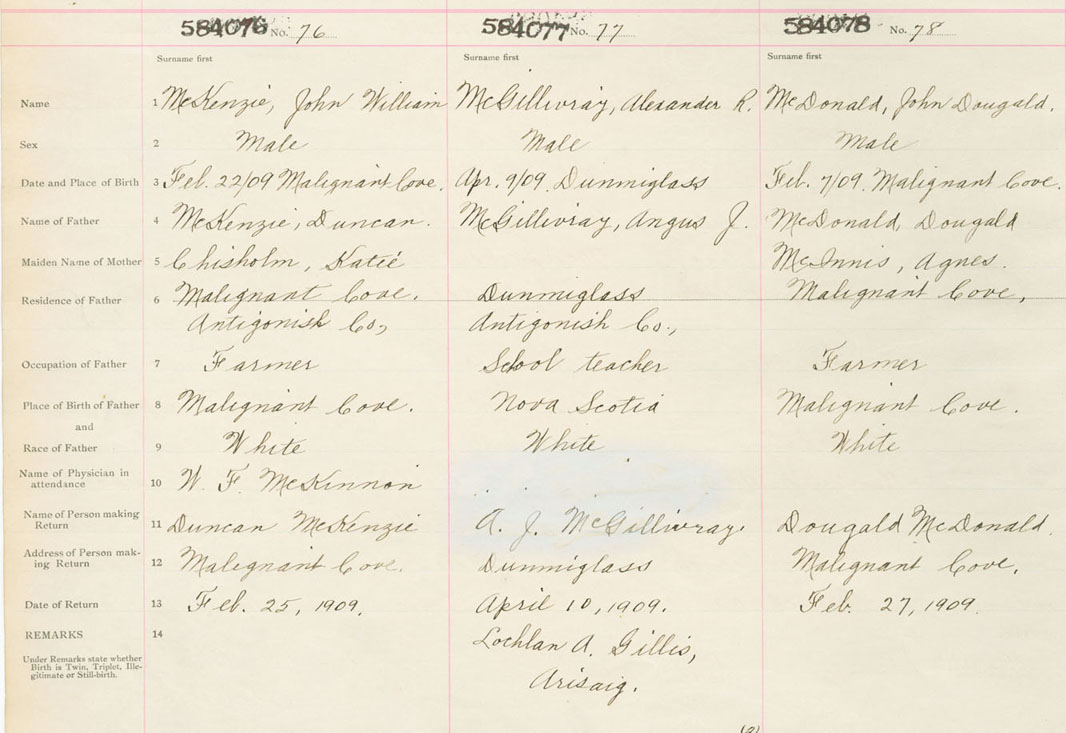 584076 No. 76 584077 No. 77 584078 No. 78
Surname first Surname first Surname first
Name 1 McKenzie, John William McGillivray, Alexander R. McDonald, John Dougald.
Sex 2 Male Male Male
Date and Place of Birth 3 Feb. 22/09 Malignant Cove. Apr. 9/09. Dunmiglass Feb. 7/09. Malignant Cove.
Name of Father 4 McKenzie, Duncan. McGillivray, Angus J. McDonald, Dougald
Maiden Name of Mother 5 Chisholm, Katie McInnis, Agnes.
Residence of Father 6 Malignant Cove. Dunmiglass Malignant Cove,
Antigonish Co., Antigonish Co.,
Occupation of Father 7 Farmer School teacher Farmer
Place of Birth of Father 8 Malignant Cove. Nova Scotia Malignant Cove.
and
Race of Father 9 White White White
Name of Physician in
attendance 10 W. F. McKinnon
Name of Person making
Return 11 Duncan McKenzie A. J. McGillivray. Dougald McDonald.
Address of Person mak-
ing Return 12 Malignant Cove. Dunmiglass Malignant Cove.
Date of Return 13 Feb. 25, 1909. April 10, 1909. Feb. 27, 1909.
REMARKS 14 Lochlan A. Gillis,
Under Remarks state whether
Birth is Twin, Triplet, Ille-
gitimate or Still-birth. Arisaig.